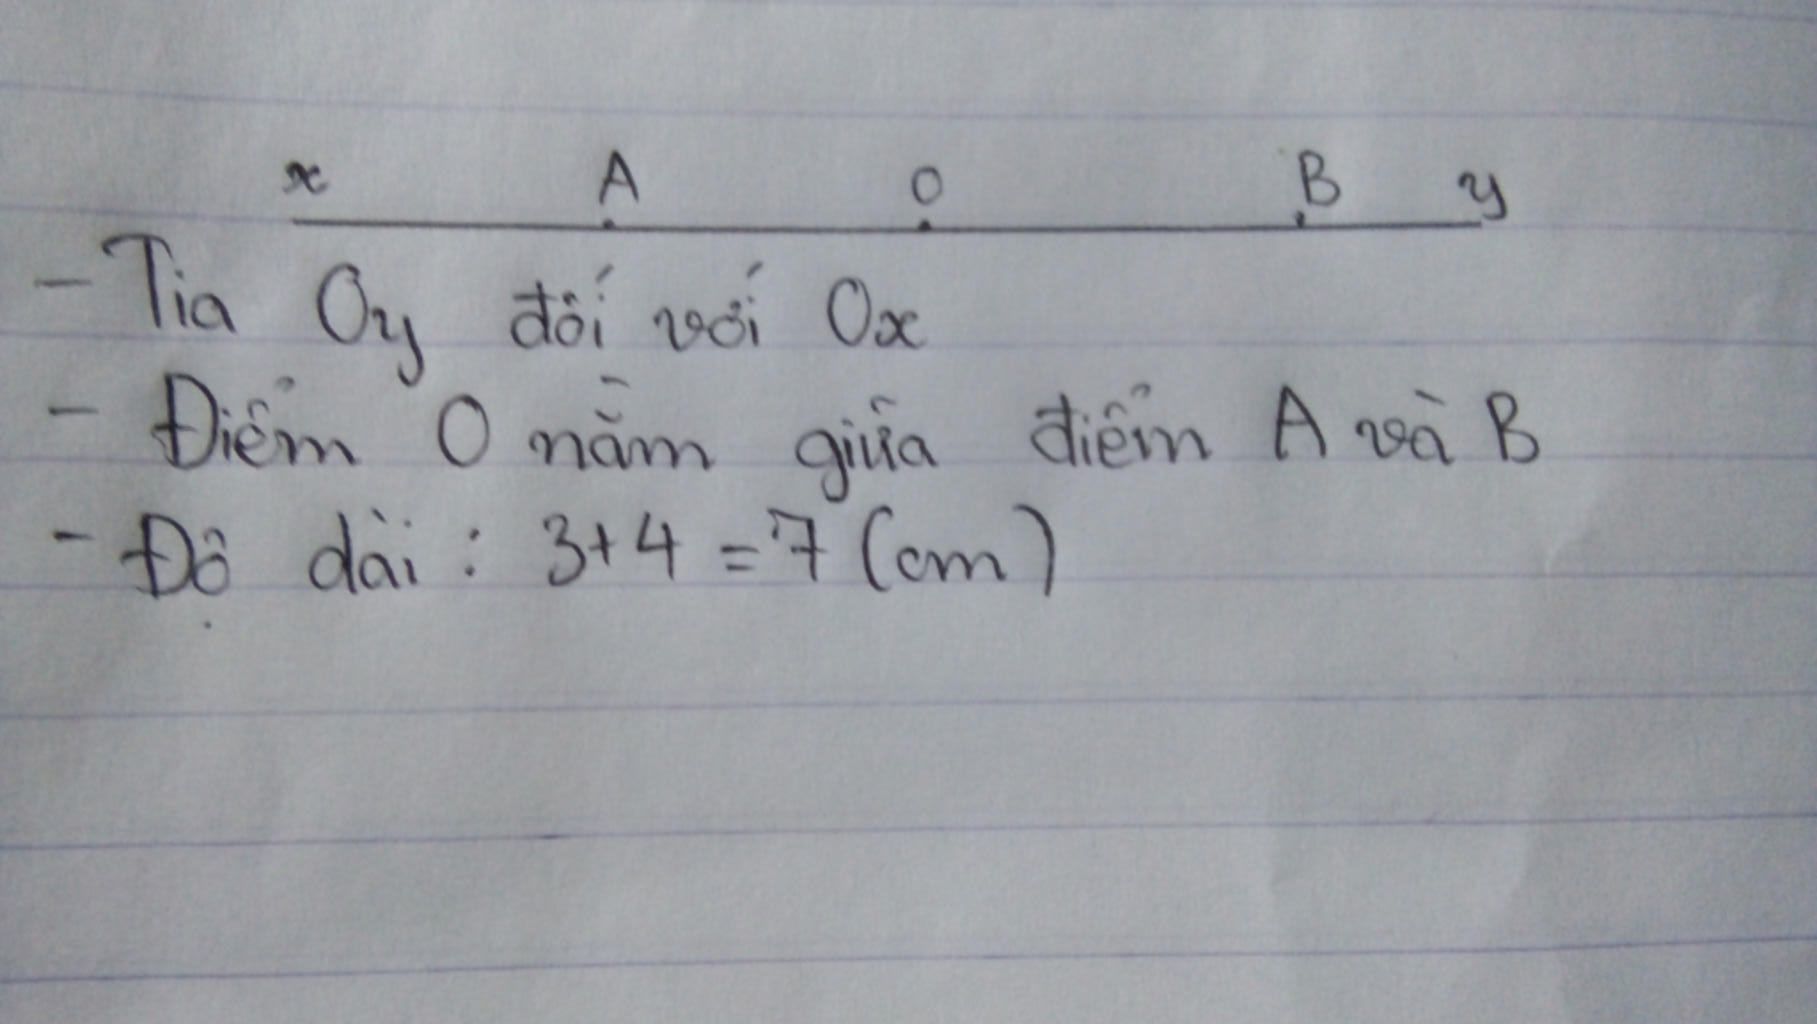 x A O B y
- Tia Oy đối với Ox
- Điểm O nằm giữa điểm A và B
- Độ dài : 3+4 = 7 (cm)